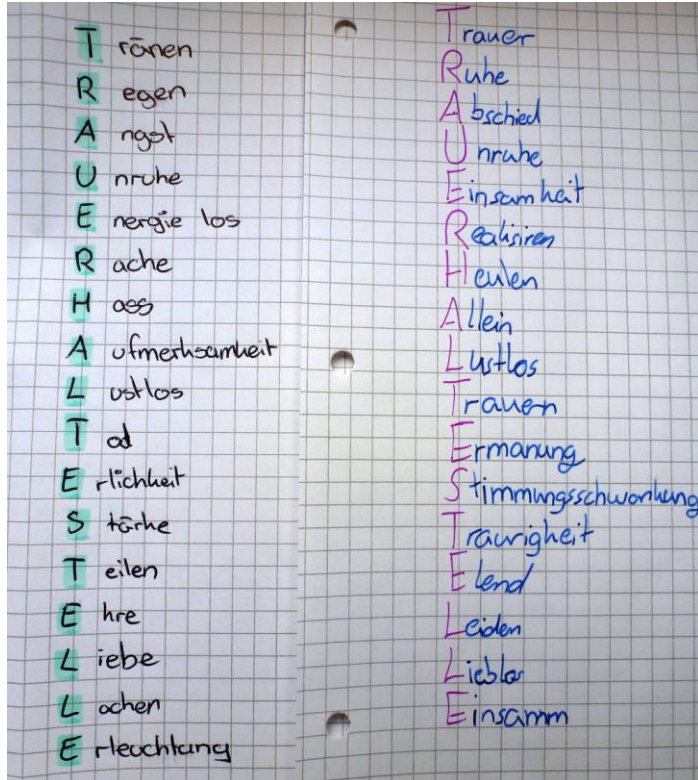 Tränen
Regen
Angst
Unruhe
Energie los
Rache
Hass
Aufmerksamkeit
Lustlos
Tod
Erlichkeit
Stärke
Teilen
Ehre
Liebe
Lachen
Erleuchtung
Trauer
Ruhe
Abschied
Unruhe
Einsamkeit
Realisiren
Heulen
Allein
Lustlos
Trauern
Ermanung
Stimmungsschwankung
Traurigkeit
Elend
Leiden
Lieblos
Einsamm